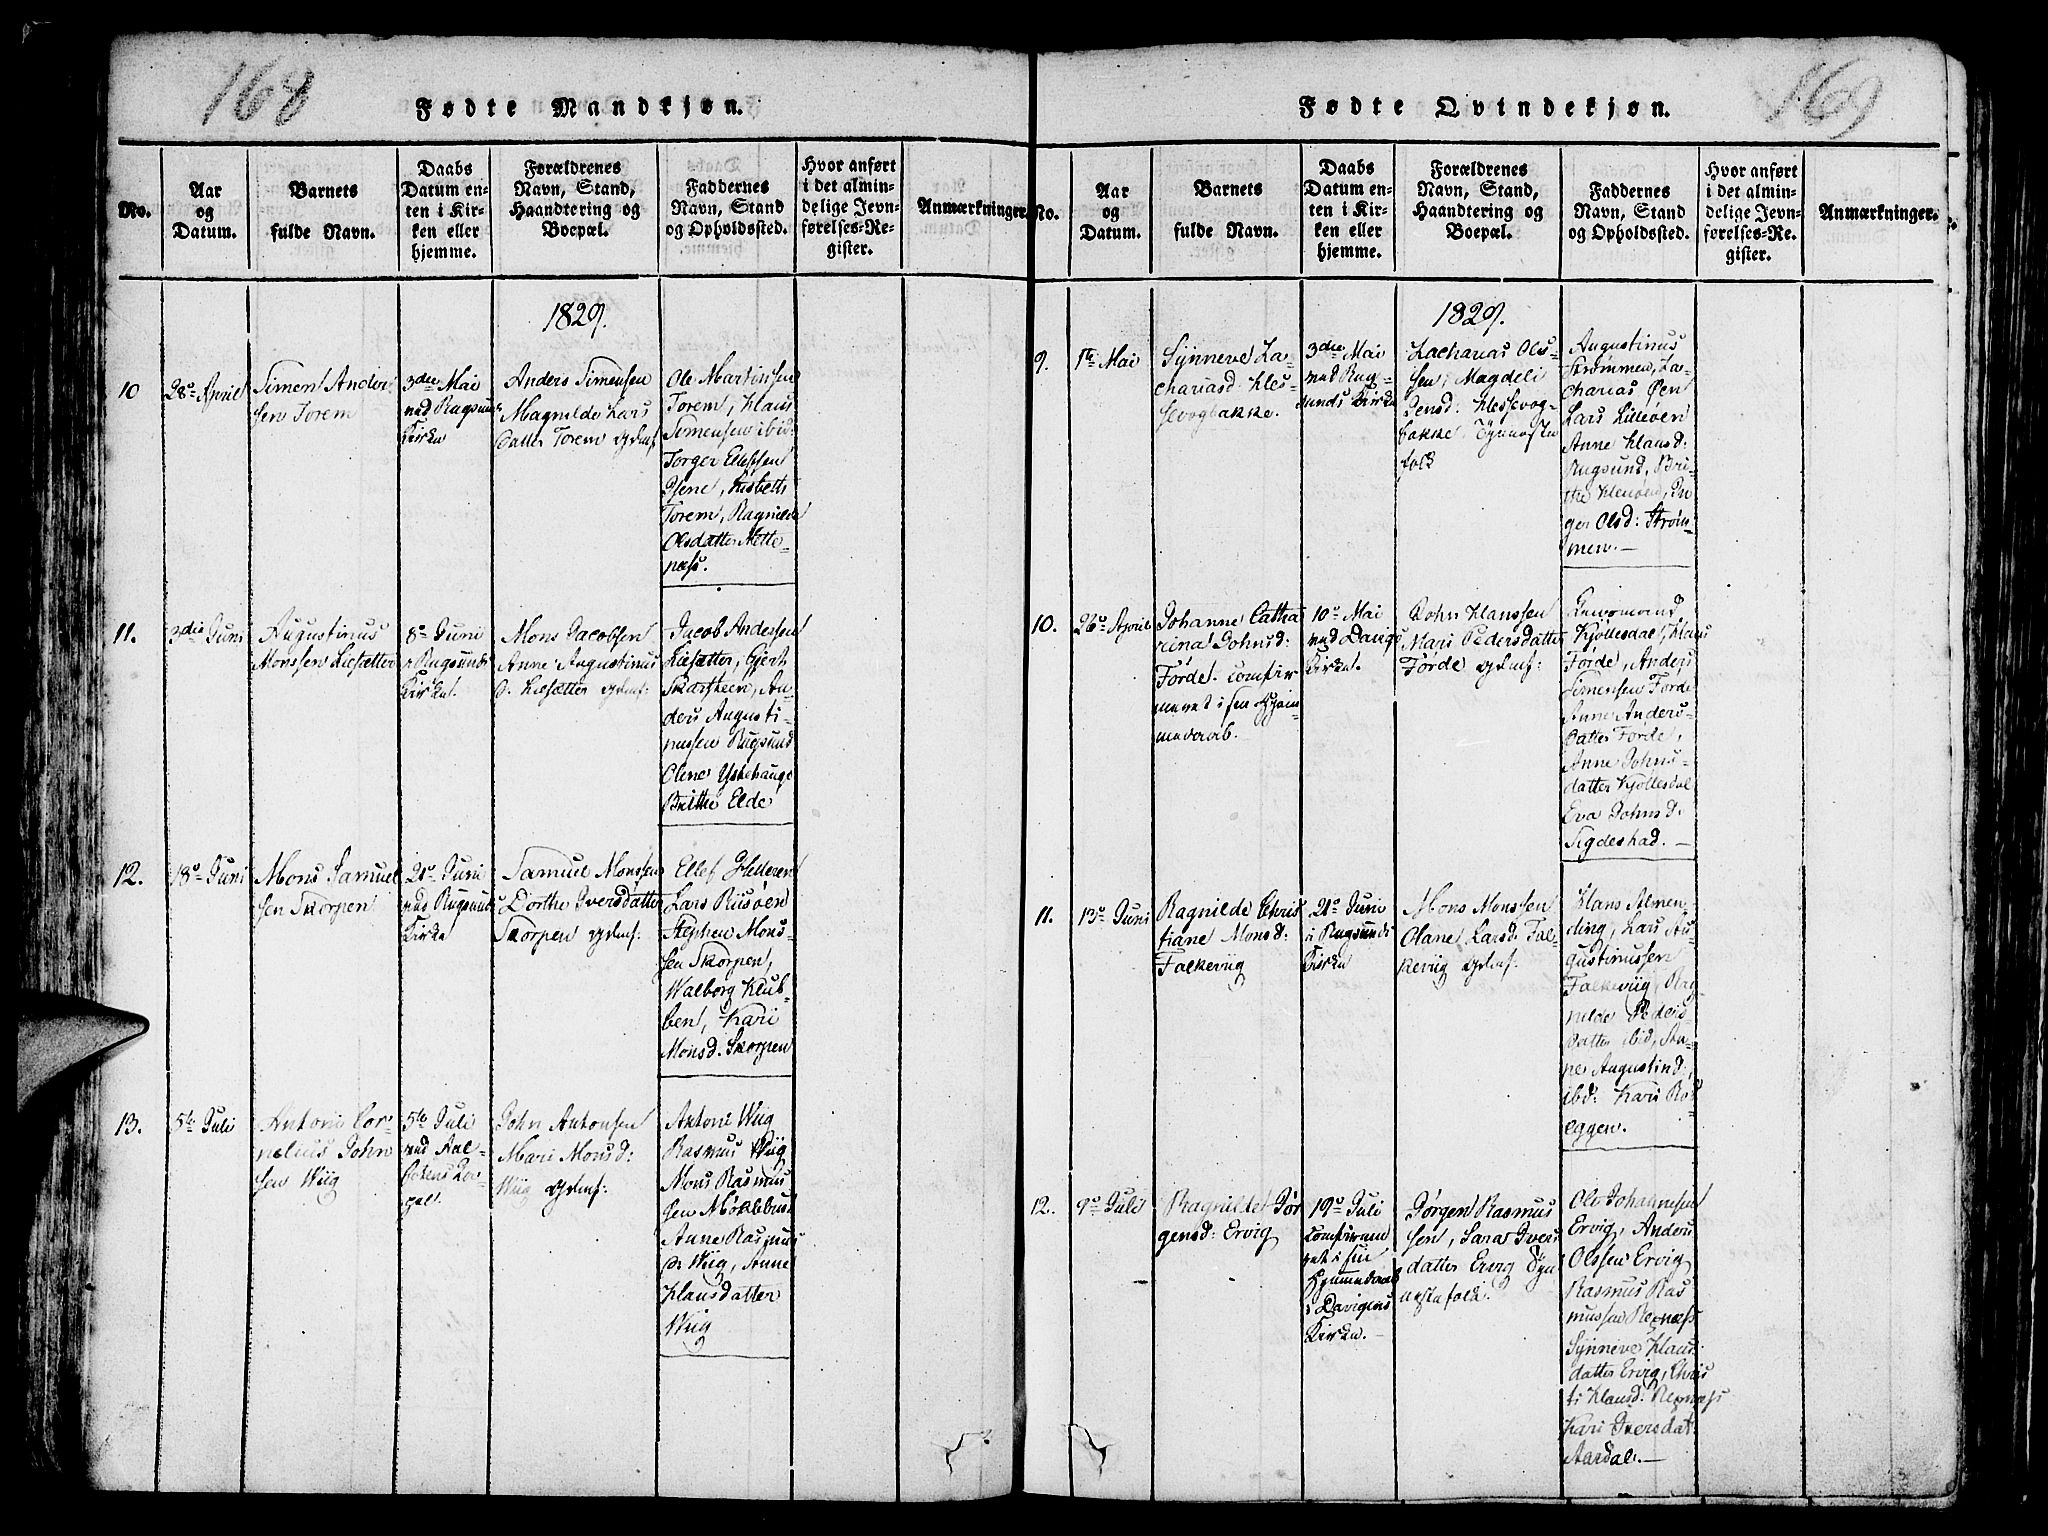 168
Fødte Mandkjøn.
No.
Aar
og
Datum.
Barnets
fulde Navn.
Daabs
Datum en-
ten i Kir-
ken eller
hjemme.
Forældrenes
Navn, Stand,
Haandtering og
Boepæl.
Faddernes
Navn, Stand
og Opholdssted.
Hvor anført
i det almin-
delige Jevn-
førelses-Re-
gister.
Anmærkninger.
1829.
10
28de April
Simen Ander
sen Torem
3die Mai
ved Rugsund
Kirke
Anders Simensen
Magnilde Lars
datter Torem
Ole Martinsen
Torem, Klaus
Simensen ibid:
Torger Ellefsen
Isene, Lisbeth
Torem, Ragnilde
Olsdatter Nette-
næss.
11.
3die Juni
Augustinus
Monssen Liesætter
8de Juni
i Rugsunds
Kirke.
Mons Jacobsen
Anne Augustinus
d. Liesætter
Jacob Andersen
Liesætter, Gjert
Skarsteen, An-
ders Augusti-
nussen Rugsund
Oline Ystehauge
Brithe Elde
12.
18de Juni
Mons Samuel
sen Skorpen
21de Juni
ved Rugsunds
Kirke
Samuel Monssen
Dorthe Iversdatter
Skorpen
Ellef Helleren
Lars Risøen
Stephen Mons-
sen Skorpen,
Walborg Klub-
ben, Kari
Monsd. Skorpen
13.
5te Juli
Antoni Cor
nelius John
sen Wiig
5te Juli
ved Aal-
John Antonsen
Mari Monsd:
Wiig
Antoni Wiig
Rasmus Wiig
Mons Rasmus
sen Møklebust
Anne Rasmus
d. Wiig, Anne
Klausdatter
Wiig
169
Fødte Qvindekjøn.
No.
Aar
og
Datum.
Barnets
fulde Navn.
Daabs
Datum en-
ten i Kir-
ken eller
hjemme.
Forældrenes
Navn, Stand,
Haandtering og
Boepæl.
Faddernes
Navn, Stand
og Opholdssted.
Hvor anført
i det almin-
delige Jevn-
førelses-Re-
gister.
Anmærkninger.
1829.
9.
1te Mai
Synneve Za-
chariasd. Kles-
sevogbakke.
3die Mai
ved Rug-
sunds Kirke
Zacharias Ols-
sen, Magdeli
Jensd: Klessevog-
bakke. Tjeneste
folk
Augustinus
Strømmen, Za-
charias Øen
Lars Lilleøen
Anne Klausd:
Rugsund, Bri-
the Klenøen, In
ger Olsd: Strøm-
men.
10.
26de April
Johanne Catha
rina Johnsd:
Førde. confir
meret i sin Hjem
medaab.
10de Mai
ved Davigs
Kirke.
John Hanssen
Mari Pedersdatter
Førde
Kjøllesdal, Klaus
Førde, Anders
Simensen Førde
Anne Anders-
datter Førde,
Anne Johns-
datter Kjøllesdal
Eva Johnsd:
Sigdestad.
11.
13de Juni
Ragnilde Chris
tiane Monsd:
Falkeviig
21de Juni
i Rugsunds
Kirke
Mons Monssen
Olane Larsd. Fal-
keviig
Hans Almen-
ding, Lars Au-
gustinussen
Falkeviig, Rag-
nilde Peders
datter ibid, An-
ne Augustind.
ibd: Kari Ros
eggen.
12.
9de Juli
Ragnilde Jør
gensd: Ervig
19de Juli
confirme
ret i sin
Hjemmedaab
i Davigens
Kirke.
Jørgen Rasmus
sen, Sara Ivers
datter Ervig Tjen
estefolk.
Ole Johannesen
Ervig, Anders
Olssen Ervig
Rasmus Ras
mussen Rexnæss
Synneve Klaus
datter Ervig, Chris
ti Klausd: Rexnæss
Kari Iversdat.
Aardal.